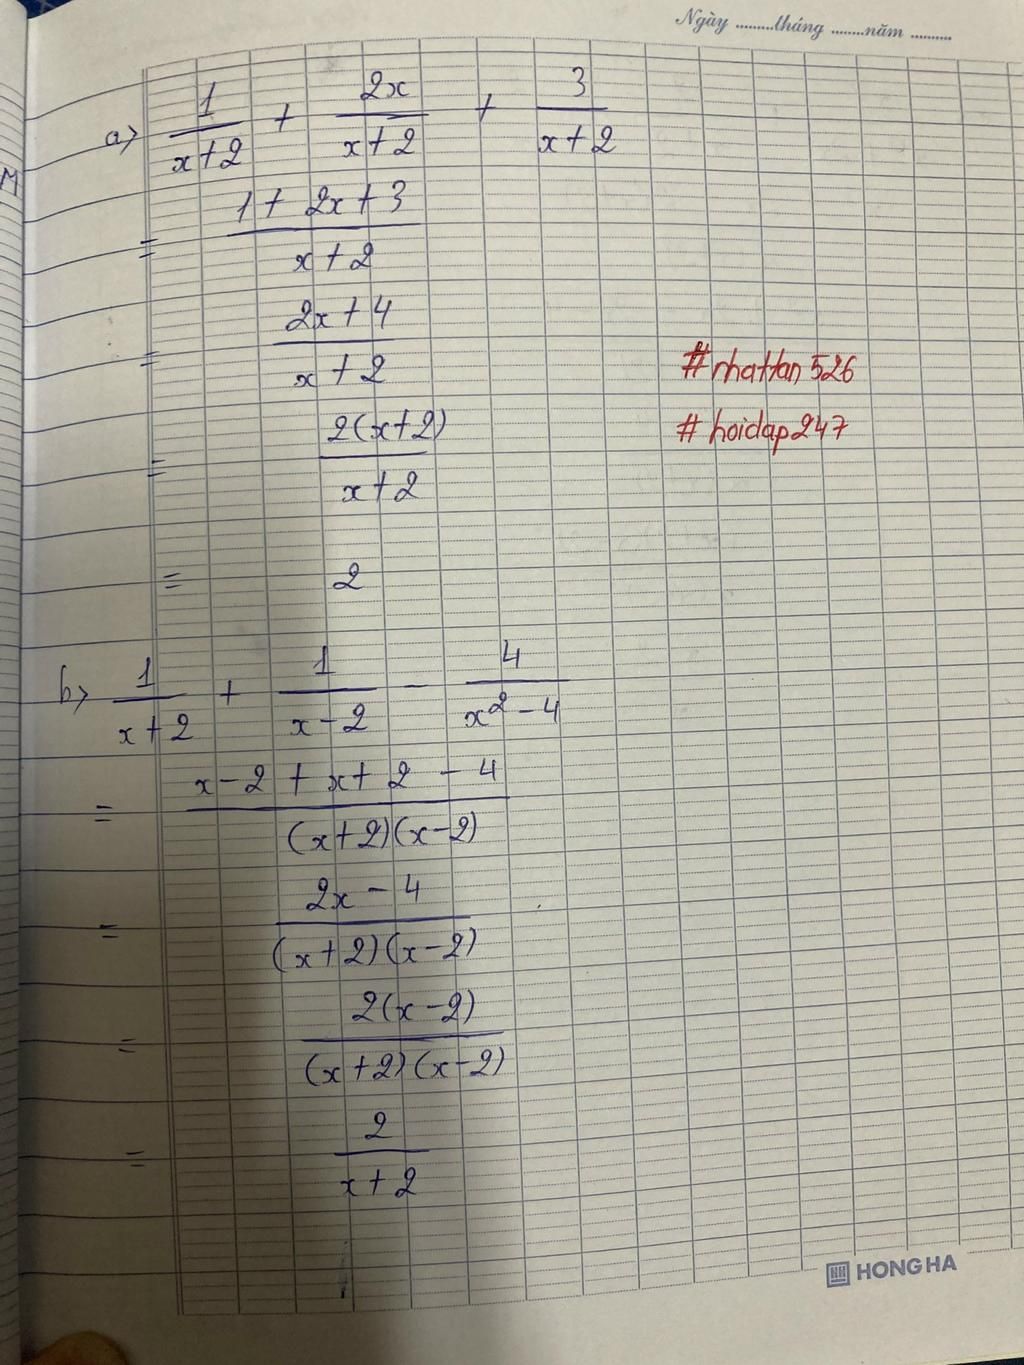 Ngày .........tháng ........năm ..........
a) 1/(x+2) + 2x/(x+2) + 3/(x+2)
= (1 + 2x + 3)/(x+2)
= (2x + 4)/(x + 2)
#nhattan526
= 2(x+2)/(x+2)
#hoidap247
= 2
b) 1/(x+2) + 1/(x-2) - 4/(x² - 4)
= (x - 2 + x + 2 - 4)/((x+2)(x-2))
= (2x - 4)/((x+2)(x-2))
= 2(x-2)/((x+2)(x-2))
= 2/(x+2)
HONG HA